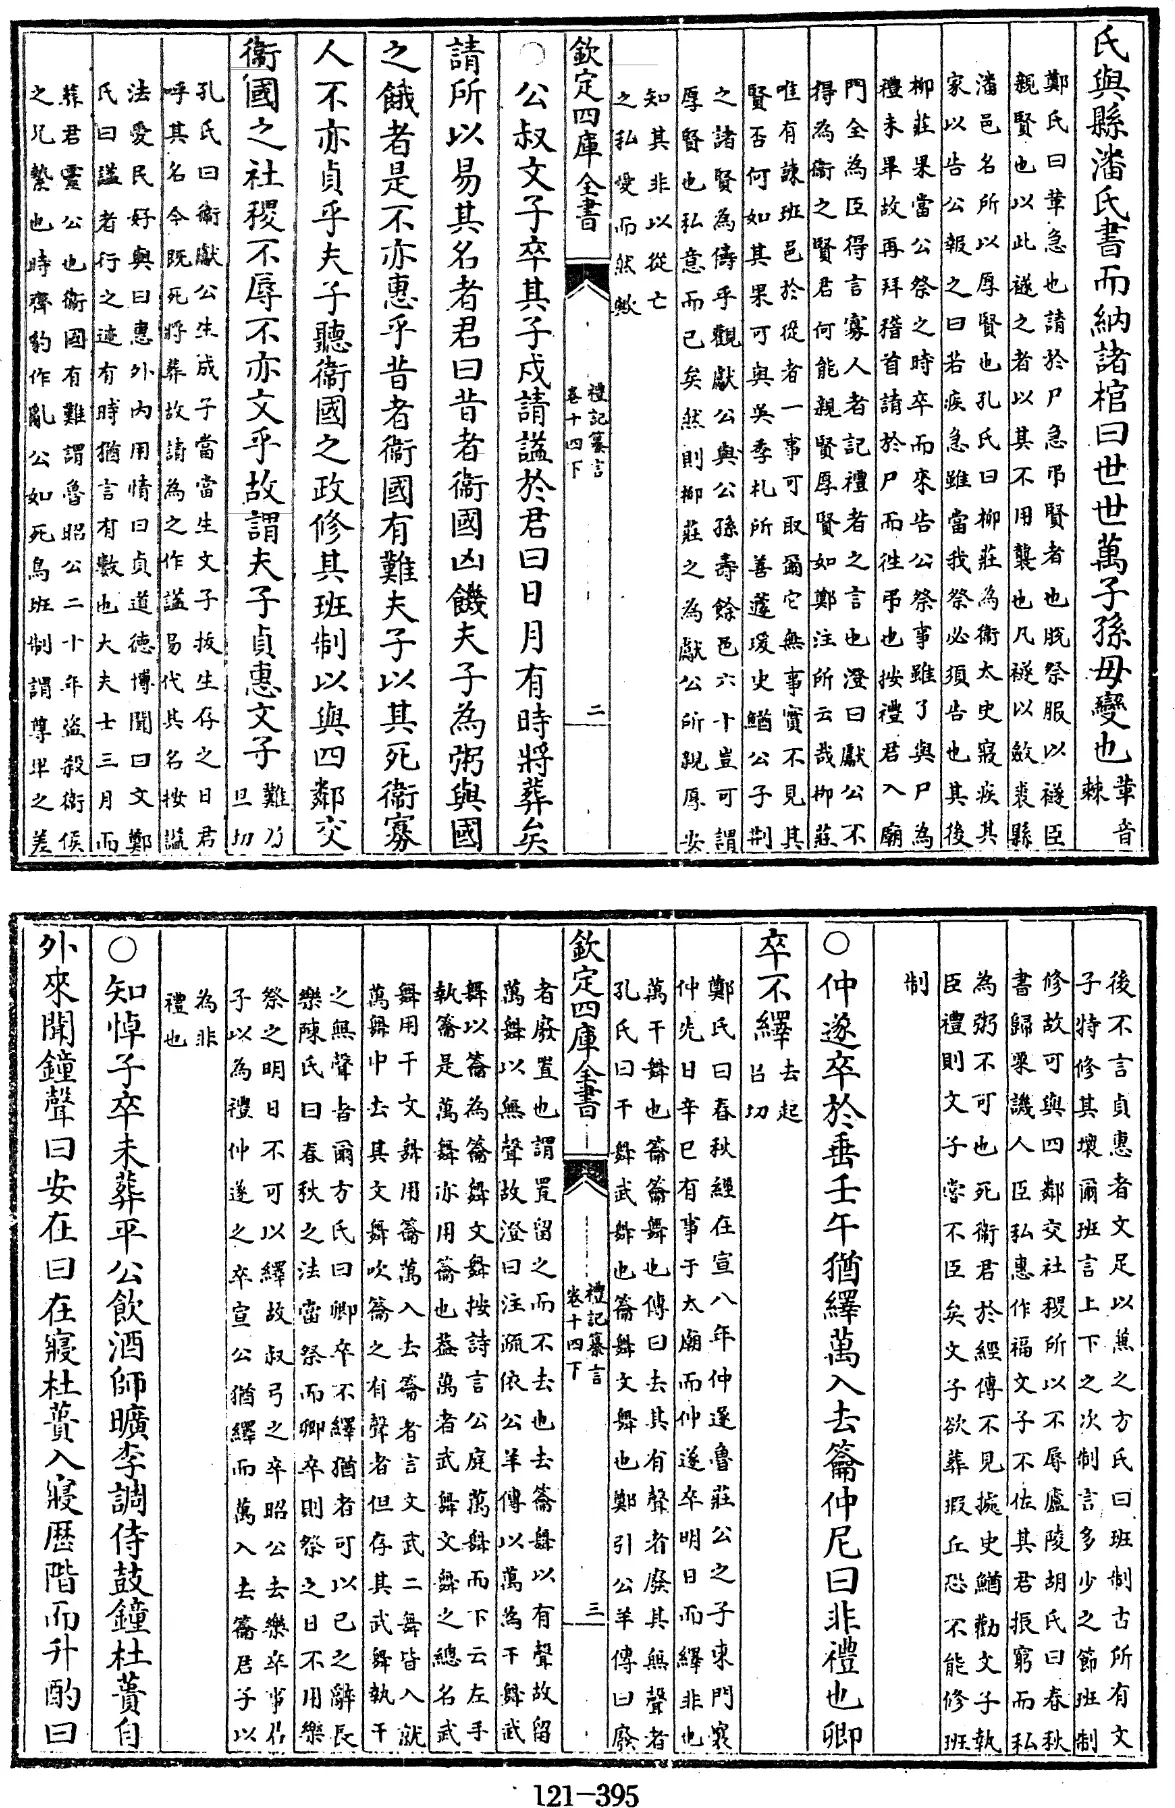 氏與縣潘氏書而納諸棺曰世世萬子孫毋變也革音
棘
鄭氏曰革急也請於尸急弔賢者也脱祭服以襚臣
親賢也以此襚之者以其不用襲也凡襚以斂裘縣
潘邑名所以厚賢也孔氏曰柳莊為衛太史寢疾其
家以告公報之曰若疾急雖當我祭必須告也其後
柳莊果當公祭之時卒而來告公祭事雖了與尸為
禮未畢故再拜稽首請於尸而往弔也按禮君入廟
門全為臣得言寡人者記禮者之言也澄曰獻公不
得為衛之賢君何能親賢厚賢如鄭注所云哉栁莊
唯有諫班邑於從者一事可取爾它無事實不見其
賢否何如其果可與吳季札所善蘧瑗史鰌公子荆
之諸賢為儔乎觀獻公與公孫壽餘邑六十豈可謂
厚賢也私意而已矣然則栁莊之為獻公所親厚安
知其非以從亡
之私愛而然歟
欽定四庫全書
禮記纂言
卷十四下
二
○公叔文子卒其子戍請諡於君曰日月有時將葬矣
請所以易其名者君曰昔者衛國凶饑夫子為粥與國
之餓者是不亦惠乎昔者衛國有難夫子以其死衛寡
人不亦貞乎夫子聽衛國之政修其班制以與四鄰交
衛國之社稷不辱不亦文乎故謂夫子貞惠文子難乃
旦切
孔氏曰衛獻公生成子當當生文子拔生存之日君
呼其名今既死將葬故請為之作諡易代其名按諡
法愛民好與曰惠外内用情曰貞道德博聞曰文鄭
氏曰諡者行之迹有時猶言有數也大夫士三月而
葬君靈公也衛國有難謂魯昭公二十年盜殺衛侯
之兄縶也時齊豹作亂公如死鳥班制謂尊卑之差
後不言貞惠者文足以兼之方氏曰班制古所有文
子特修其壞爾班言上下之次制言多少之節班制
修故可與四鄰交社稷所以不辱廬陵胡氏曰春秋
書歸粟譏人臣私惠作福文子不佐其君振窮而私
為粥不可也死衛君於經傳不見據史鰌勸文子執
臣禮則文子嘗不臣矣文子欲葬瑕丘恐不能修班
制
○仲遂卒於垂壬午猶繹萬入去籥仲尼曰非禮也卿
卒不繹去起
吕切
鄭氏曰春秋經在宣八年仲遂魯莊公之子東門襄
仲先日辛巳有事于太廟而仲遂卒明日而繹非也
萬干舞也籥籥舞也傳曰去其有聲者廢其無聲者
孔氏曰干舞武舞也籥舞文舞也鄭引公羊傳曰廢
欽定四庫全書
禮記纂言
卷十四下
三
者廢置也謂置留之而不去也去籥舞以有聲故留
萬舞以無聲故澄曰注疏依公羊傳以萬為干舞武
舞以籥為籥舞文舞按詩言公庭萬舞而下云左手
執籥是萬舞亦用籥也葢萬者武舞文舞之總名武
舞用干文舞用籥萬入去籥者言文武二舞皆入就
萬舞中去其文舞吹籥之有聲者但存其武舞執干
之無聲者爾方氏曰卿卒不繹猶者可以已之辭長
樂陳氏曰春秋之法當祭而卿卒則祭之日不用樂
祭之明日不可以繹故叔弓之卒昭公去樂卒事君
子以為禮仲遂之卒宣公猶繹而萬入去籥君子以
為非
禮也
○知悼子卒未葬平公飲酒師曠李調侍鼓鐘杜蕢自
外來聞鐘聲曰安在曰在寢杜蕢入寢歴階而升酌曰
121-395